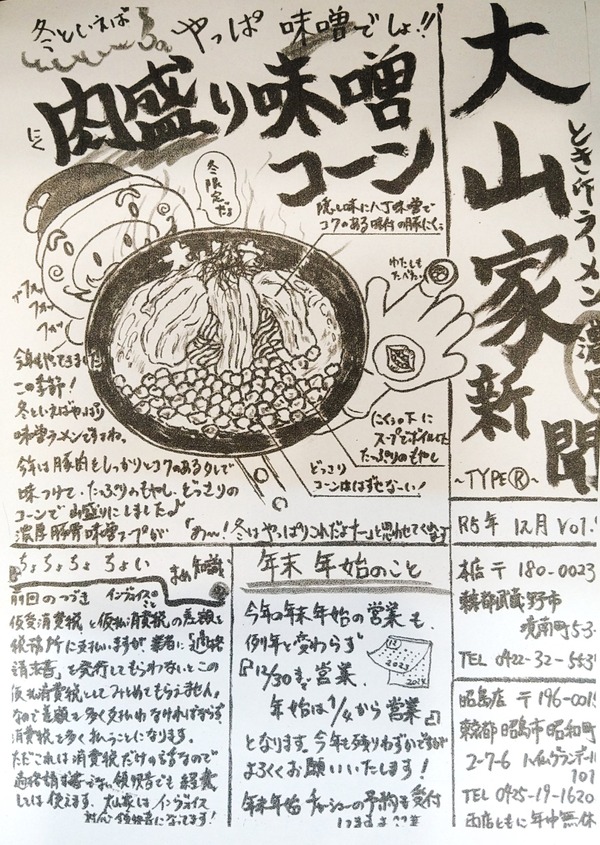 冬といえば やっぱ 味噌でしょ!!
肉盛り味噌
にく
コーン
冬
限定
だよ
隠し味に八丁味噌で
コクのある味付の豚にくぅ
わたしも
たべたい
今年もやってきました
この季節!
冬といえばやっぱり
味噌ラーメンですよね。
今年は豚肉をしっかりとコクのあるタレで
味つけて、たっぷりのもやし、どっさりの
コーンで山盛りにしました
濃厚豚骨味噌スープが
「あ〜!冬はやっぱりこれだよナー」と思わせてくれます
にくぅの下に
スープでボイルした
たっぷりのもやし
どっさり
コーンははずせなーい!
大山家新聞
ときどきラーメン
濃厚
~TYPE®~
R5年 12月 Vol.
本店 〒 180-0023
東京都武蔵野市
境南町5-3-
TEL 0422-32-553
昭島店 〒196-001
東京都昭島市昭和町
2-7-6 ハイムグランデール
101
TEL 0425-19-1620
両店ともに年中無休
ちょちょちょ ちょい
まめ知識
前回のつづき インヴォイスのこと
仮受消費税と仮払消費税の差額を
税務所に支払いますが業者に「適格
請求書」を発行してもらわないとこの
仮払消費税としてみとめてもらえません。
なので差額を多く支払わなければならず
消費税を多く払うことになります。
ただこれは消費税だけの話なので
適格請求書でない領収書でも経費
としては使えます。大山家はインヴォイス
対応領収書になってます!
年末 年始のこと
今年の年末年始の営業も、
例年と変わらず
12
2023
『12/30まで営業、
年始は1/4から営業』
となります。今年も残りわずかですが
よろしくお願いいたします!
年末年始チャーシューの予約も受付